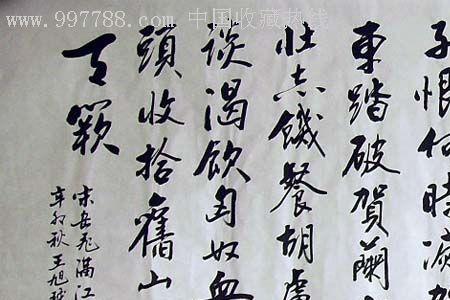 www.997788.com 中国收藏热线
子恨何時滅駕
車踏破賀蘭
壯志饑餐胡虜
談渴飲匈奴血
頭收拾舊山
天闕
宋岳飛滿江
辛卯秋王旭